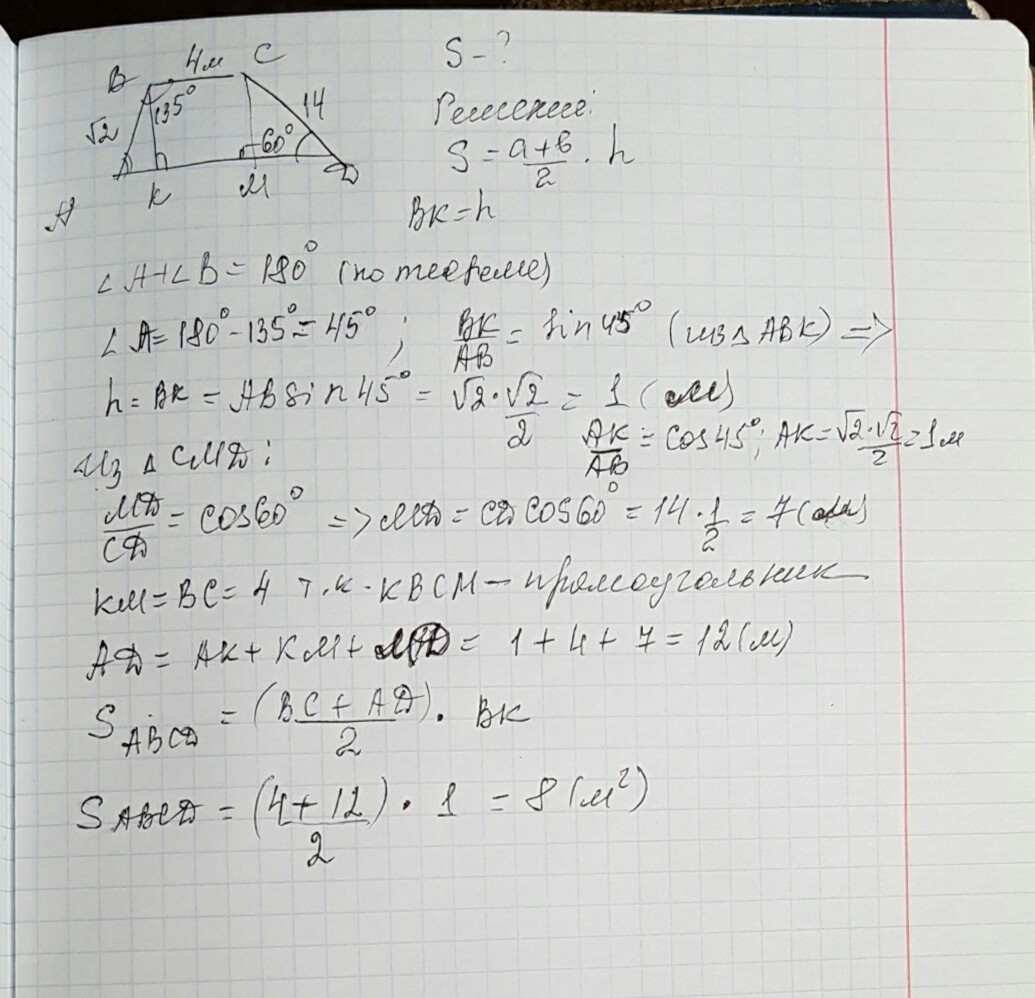 B 4м C
√2 135° 60° 14
A K M D
S - ?
Решение:
S = (a+b)/2 · h
BK = h
∠A+∠B = 180° (по теореме)
∠A = 180° - 135° = 45° ; BK/AB = sin 45° (из △ABK) =>
h = BK = AB sin 45° = √2·√2/2 = 1 (м)
AK/AB = cos 45°; AK = √2·√2/2 = 1м
Из △ CMD :
MD/CD = cos 60° => MD = CD cos 60° = 14 · 1/2 = 7 (м)
KM = BC = 4 т.к. KBCM - прямоугольник
AD = AK + KM + MD = 1 + 4 + 7 = 12 (м)
S ABCD = (BC + AD)/2 · BK
S ABCD = (4 + 12)/2 · 1 = 8 (м²)